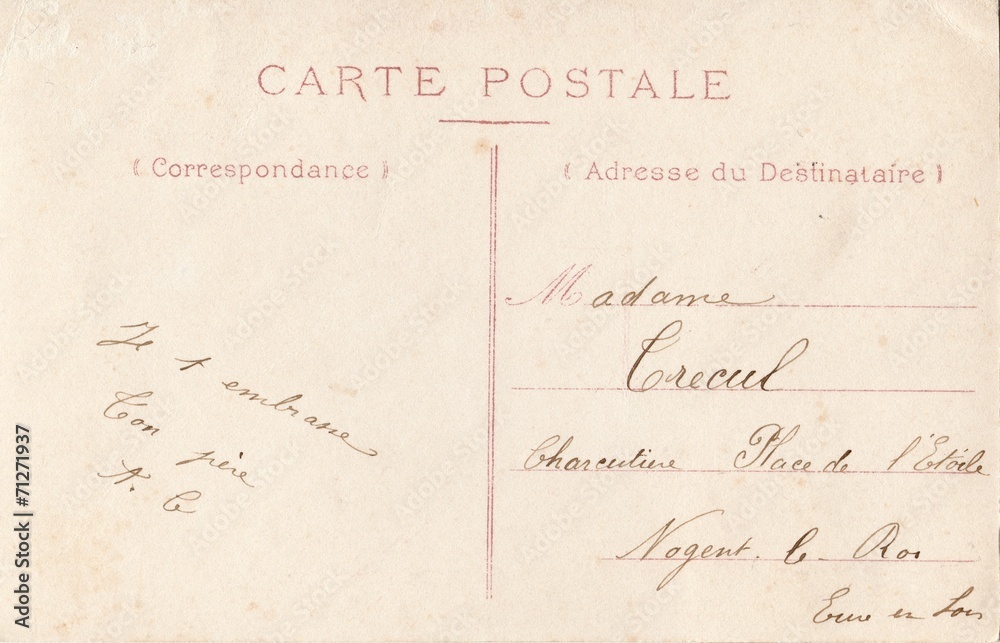 CARTE POSTALE
( Correspondance )
( Adresse du Destinataire )
Je t embrasse
Ton père
A. C
Madame
Trecul
Charcutiere Place de l'Etoile
Nogent. le Roi
Eure en Loir
Adobe Stock | #71271937